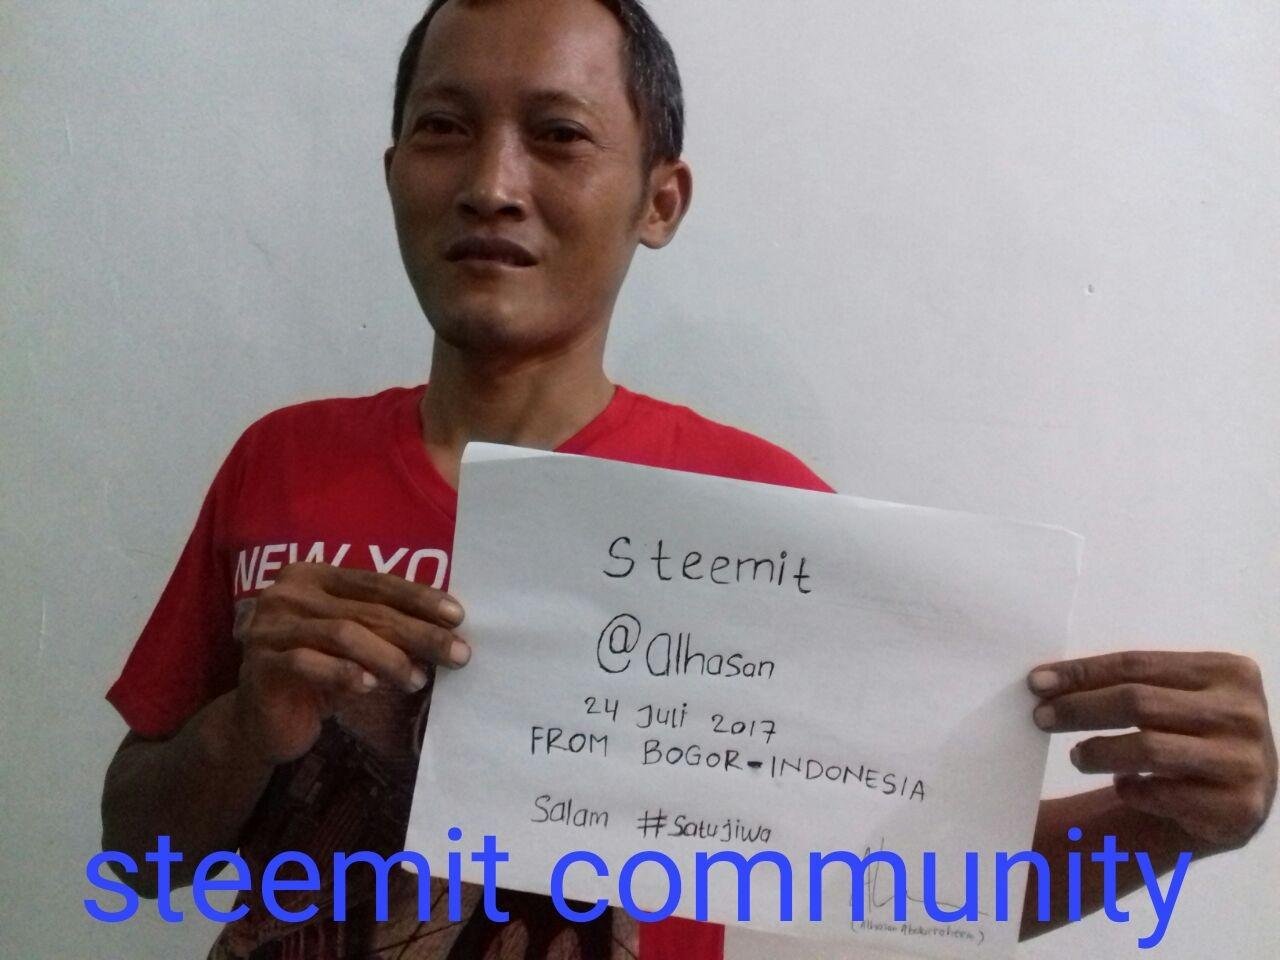 NEW YO
Steemit
@alhasan
24 Juli 2017
FROM BOGOR-INDONESIA
Salam #Satujiwa
steemit community